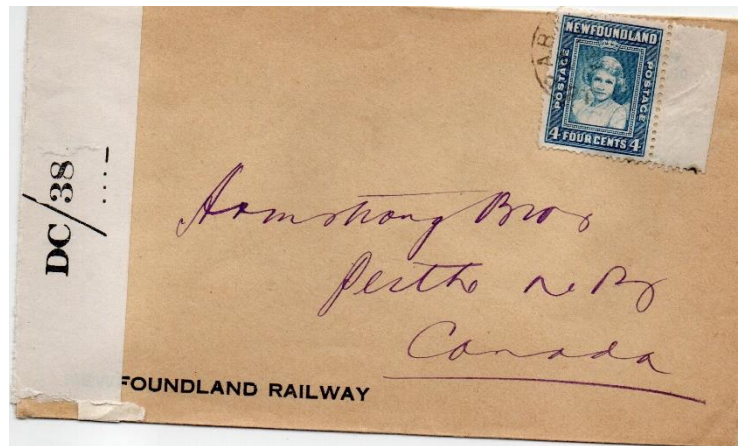 NEWFOUNDLAND
POSTAGE
POSTAGE
4 FOUR CENTS 4
DC/38
Armstrong Bros
Perth N.B.
Canada
FOUNDLAND RAILWAY